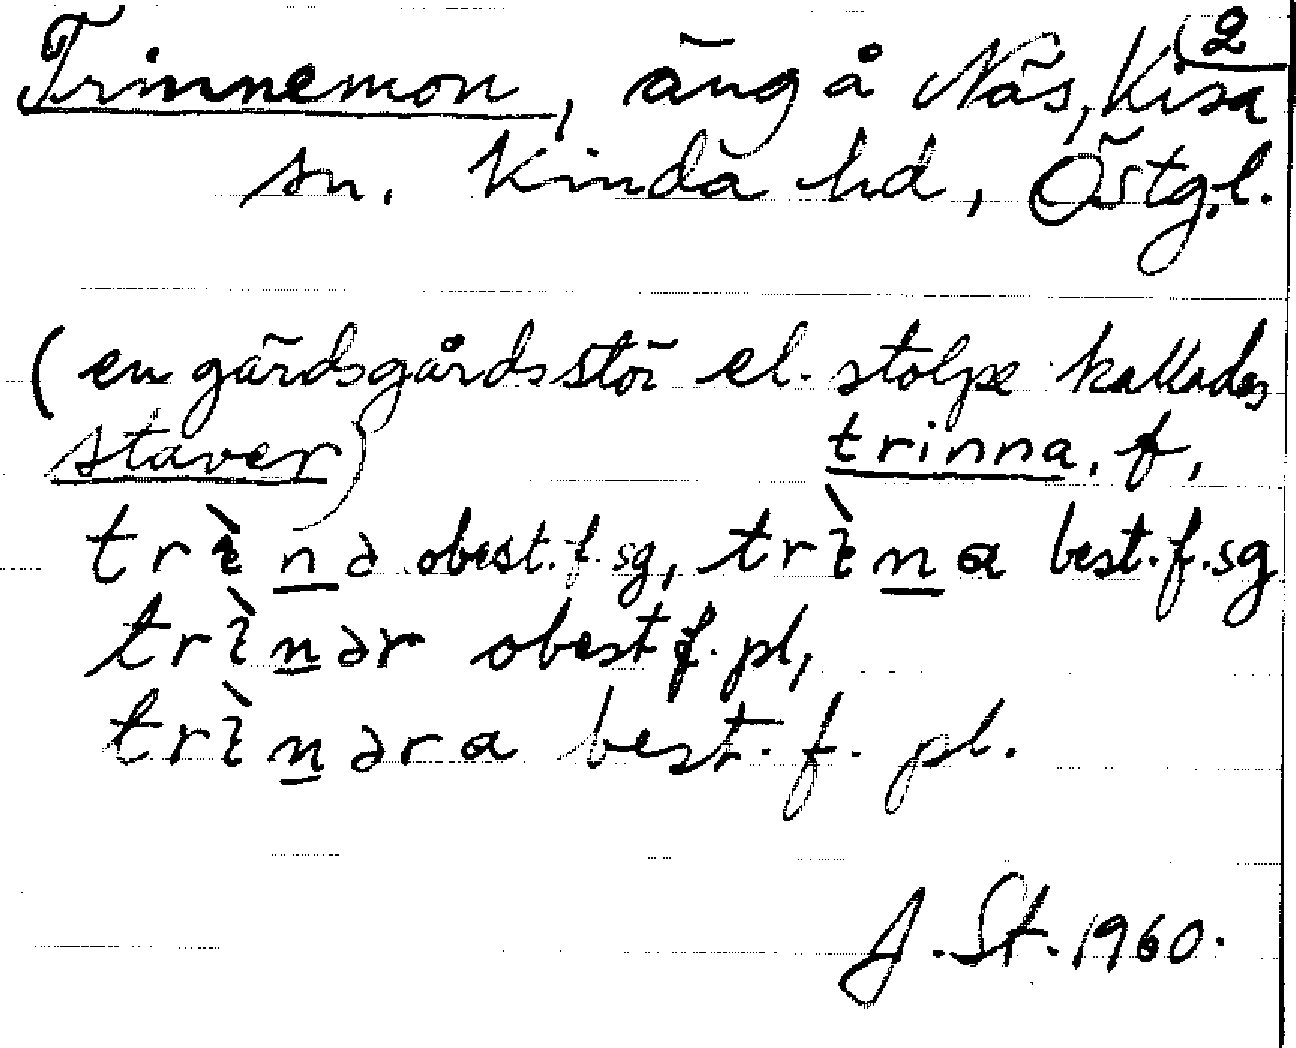 2
Trinnemon, äng å Näs, Kisa
sn. Kinda hd, Östg.l.
(en gärdsgårdsstör el. stolpe kallades
staver) trinna, f,
trìnə obest.f.sg, trìna best.f.sg
trìnər obest f. pl,
trìnəra best. f. pl.
J. St. 1960.